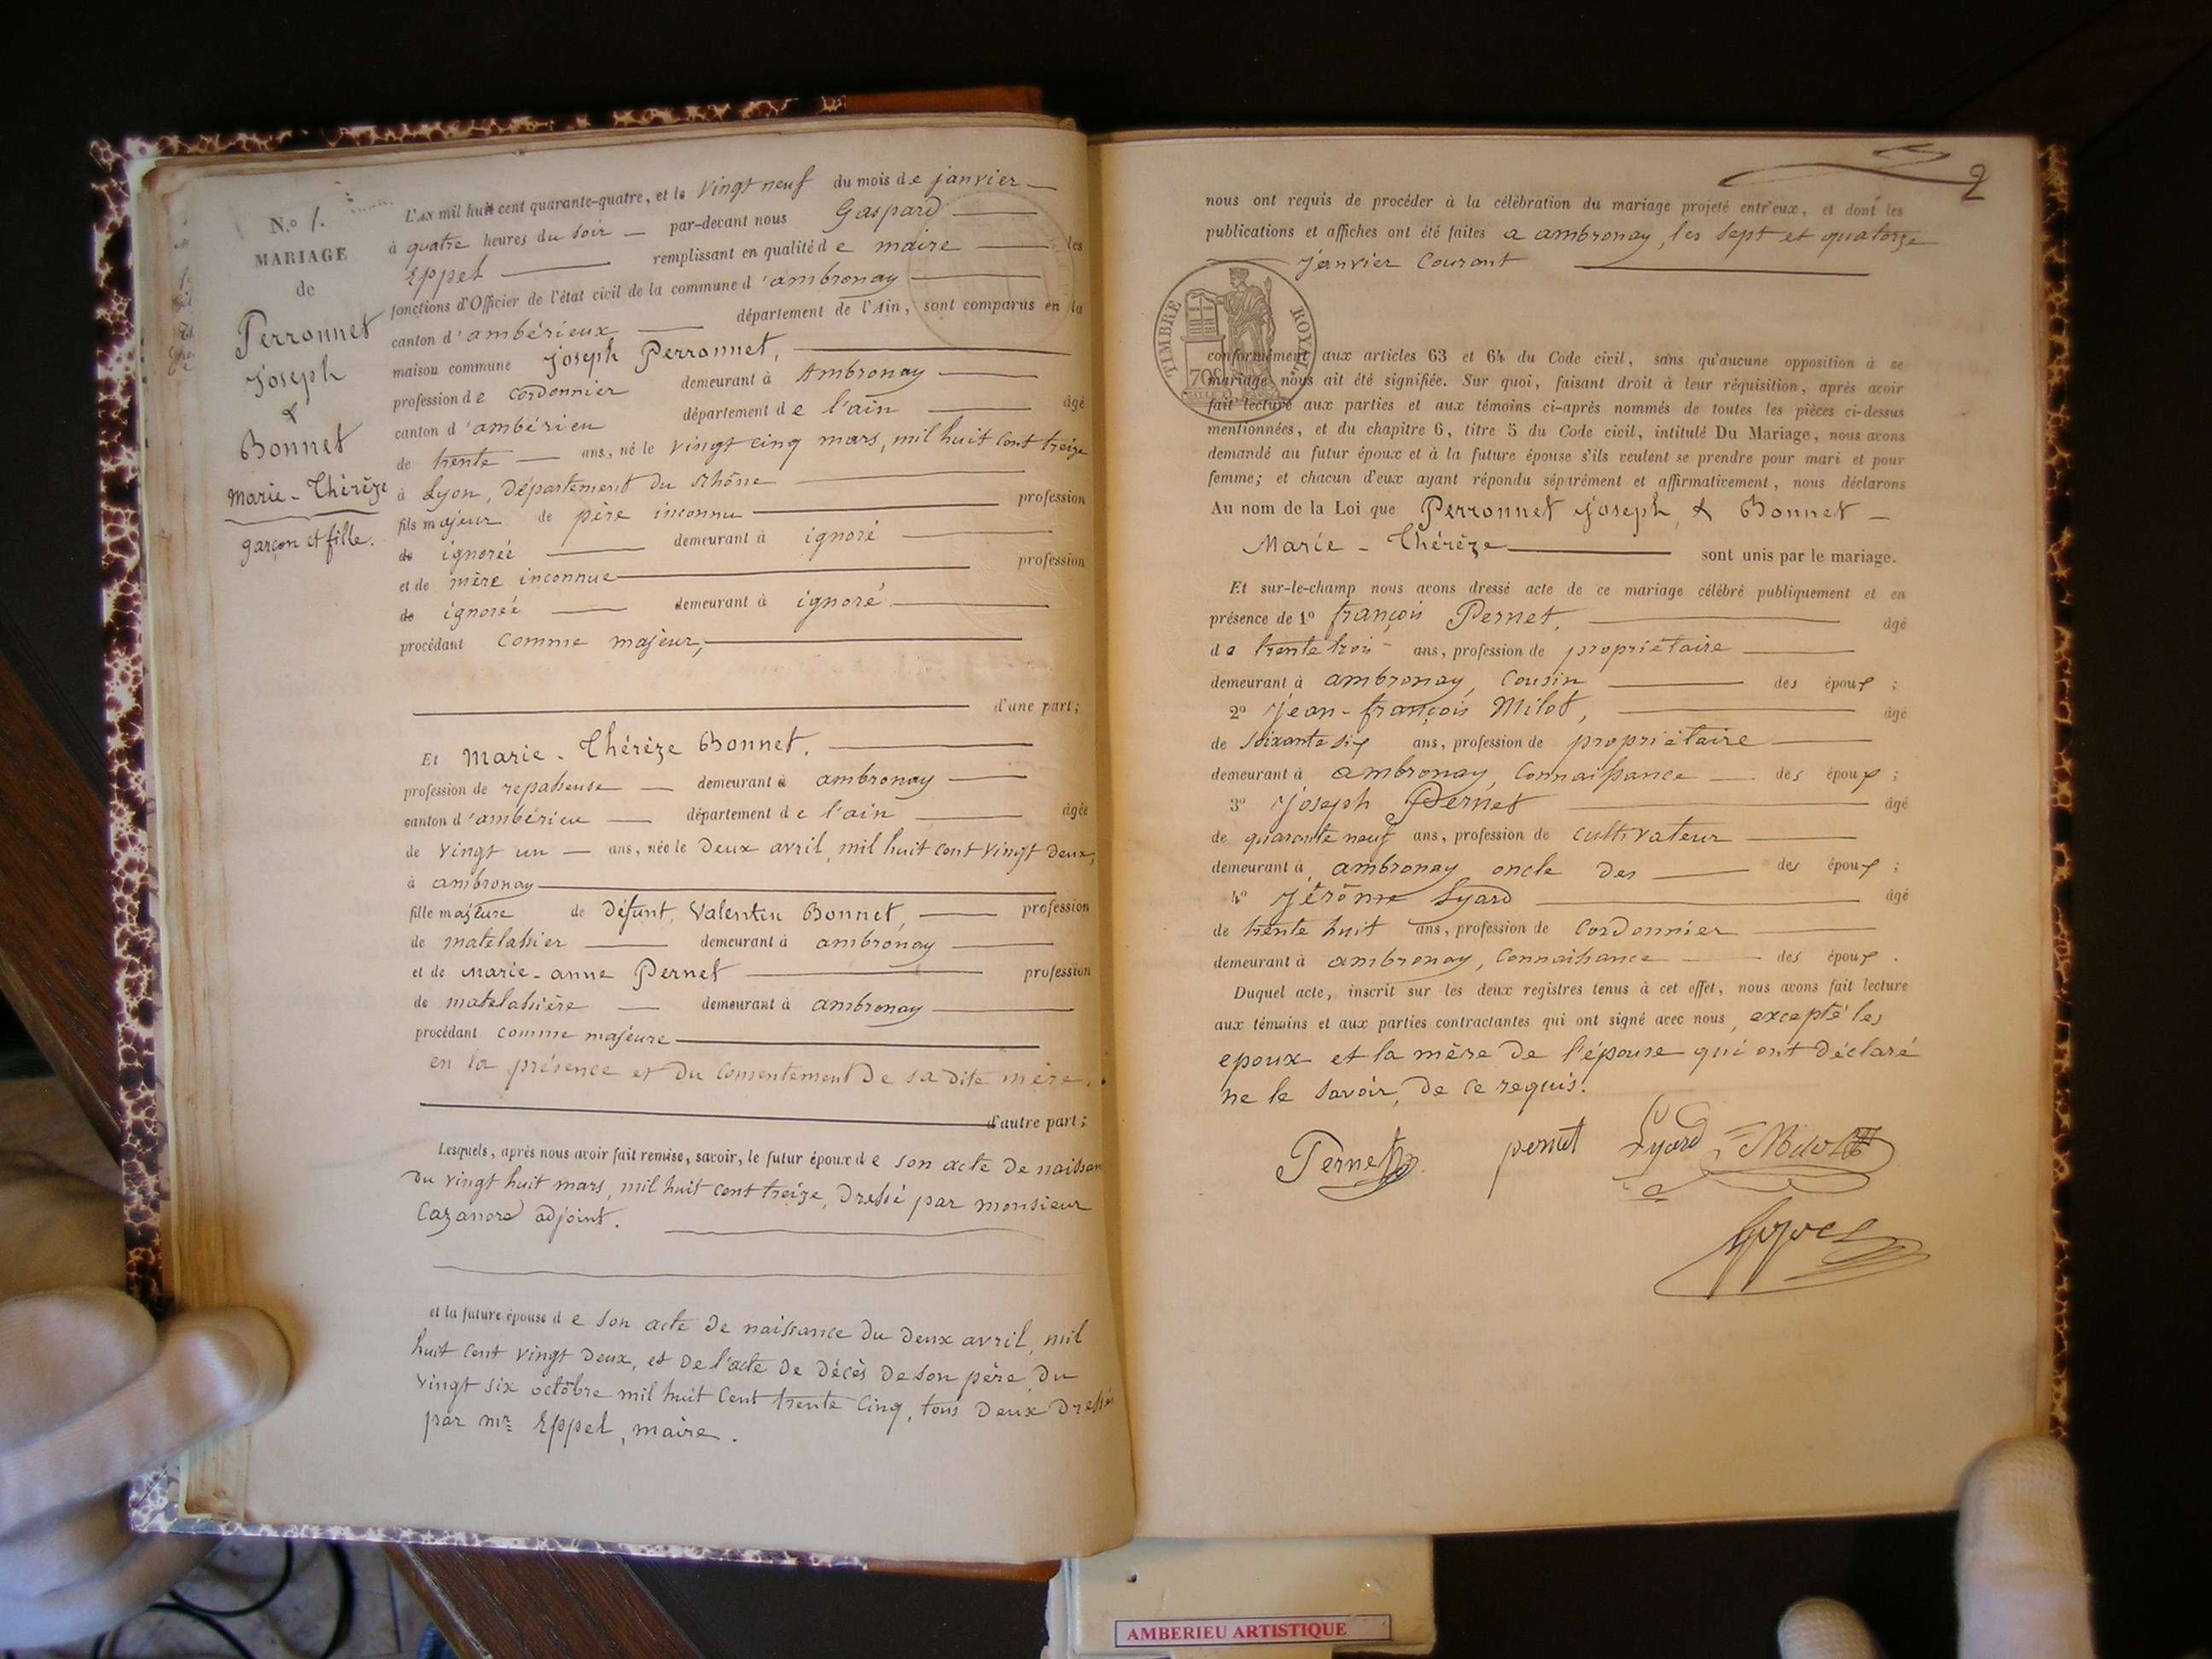 N.º 1.
MARIAGE
de
Perronnet
Joseph
&
Bonnet
Marie-Thérèze
garçon et fille.
L'AN mil huit cent quarante-quatre, et le vingt neuf du mois de janvier
à quatre heures du soir par-devant nous Gaspard
Eppel remplissant en qualité de maire les
fonctions d'Officier de l'état civil de la commune d'ambronay
canton d'ambérieux département de l'Ain, sont comparus en la
maison commune Joseph Perronnet,
profession de cordonnier demeurant à Ambronay
canton d'ambérieu département de l'ain âgé
de trente ans, né le vingt cinq mars, mil huit cent treize
à Lyon, département du rhône
fils majeur de père inconnu profession
de ignoréé demeurant à ignoré
et de mère inconnue profession
de ignoréé demeurant à ignoré
procédant comme majeur,
d'une part;
Et Marie-Thérèze Bonnet,
profession de repasseuse demeurant à ambronay
canton d'ambérieu département de l'ain âgée
de vingt un ans, née le deux avril, mil huit cent vingt deux,
à ambronay
fille majeure de défunt, Valentin Bonnet, profession
de matelassier demeurant à ambronay
et de Marie-anne Pernet profession
de matelassière demeurant à ambronay
procédant comme majeure
en la présence et du consentement de sa dite mère.
d'autre part;
Lesquels, après nous avoir fait remise, savoir, le futur époux de son acte de naissan
du vingt huit mars, mil huit cent treize, dressé par monsieur
Cazanord adjoint.
et la future épouse de son acte de naissance du deux avril, mil
huit cent vingt deux, et de l'acte de décès de son père, du
vingt six octôbre mil huit cent trente cinq, tous deux dressés
par mr Eppel, maire.
2
nous ont requis de procéder à la célébration du mariage projeté entr'eux, et dont les
publications et affiches ont été faites a ambronay, les sept et quatorze
janvier courant
TIMBRE ROYAL
70c
conformément aux articles 63 et 64 du Code civil, sans qu'aucune opposition à ce
mariage nous ait été signifiée. Sur quoi, faisant droit à leur réquisition, après avoir
fait lecture aux parties et aux témoins ci-après nommés de toutes les pièces ci-dessus
mentionnées, et du chapitre 6, titre 5 du Code civil, intitulé Du Mariage, nous avons
demandé au futur époux et à la future épouse s'ils veulent se prendre pour mari et pour
femme; et chacun d'eux ayant répondu séparément et affirmativement, nous déclarons
Au nom de la Loi que Perronnet Joseph, & Bonnet
Marie-Thérèze sont unis par le mariage.
Et sur-le-champ nous avons dressé acte de ce mariage célébré publiquement et en
présence de 1º françois Pernet, âgé
de trente trois ans, profession de propriétaire
demeurant à ambronay, cousin des époux;
2º Jean-françois Milot, âgé
de soixante six ans, profession de propriétaire
demeurant à ambronay, connaissance des époux;
3º Joseph Pernet âgé
de quarante neuf ans, profession de cultivateur
demeurant à ambronay oncle des des époux;
4º Jérôme Lyard âgé
de trente huit ans, profession de cordonnier
demeurant à ambronay, connaissance des époux.
Duquel acte, inscrit sur les deux registres tenus à cet effet, nous avons fait lecture
aux témoins et aux parties contractantes qui ont signé avec nous, excepté les
epoux et la mère de l'épouse qui ont déclaré
ne le savoir, de ce requis.
Pernet pernet Lyard Milot
Eppel
AMBERIEU ARTISTIQUE